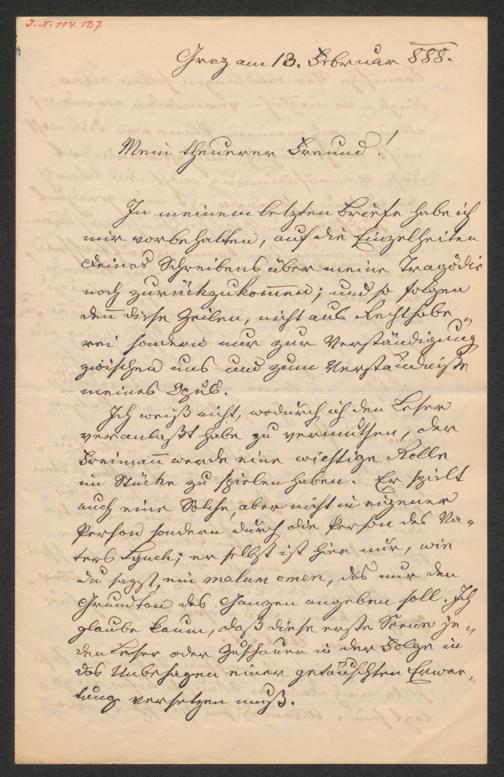 J. N. 114.127
Graz am 13. Februar 888.
Mein theuerer Freund!
In meinem letzten Briefe habe ich
mir vorbehalten, auf die Einzelheiten
Deines Schreibens über meine Tragödie
noch zurückzukommen; und so folgen
denn diese Zeilen, nicht aus Rechthabe
rei sondern nur zur Verständigung
zwischen uns und zum Verständniße
meines Opus.
Ich weiß nicht, wodurch ich den Leser
veranlaßt habe zu vermuthen, der
Freimann werde eine wichtige Rolle
im Stücke zu spielen haben. Er spielt
auch eine Solche, aber nicht in eigener
Person sondern durch die Person des Va-
ters Lynch; er selbst ist hier nur, wie
du sagst, ein malum omen, das nur den
Grundton des Ganzen angeben soll. Ich
glaube kaum, daß diese erste Scene je-
den Leser oder Zuschauer in der Folge in
das Unbehagen einer getäuschten Erwar-
tung versetzen muß.